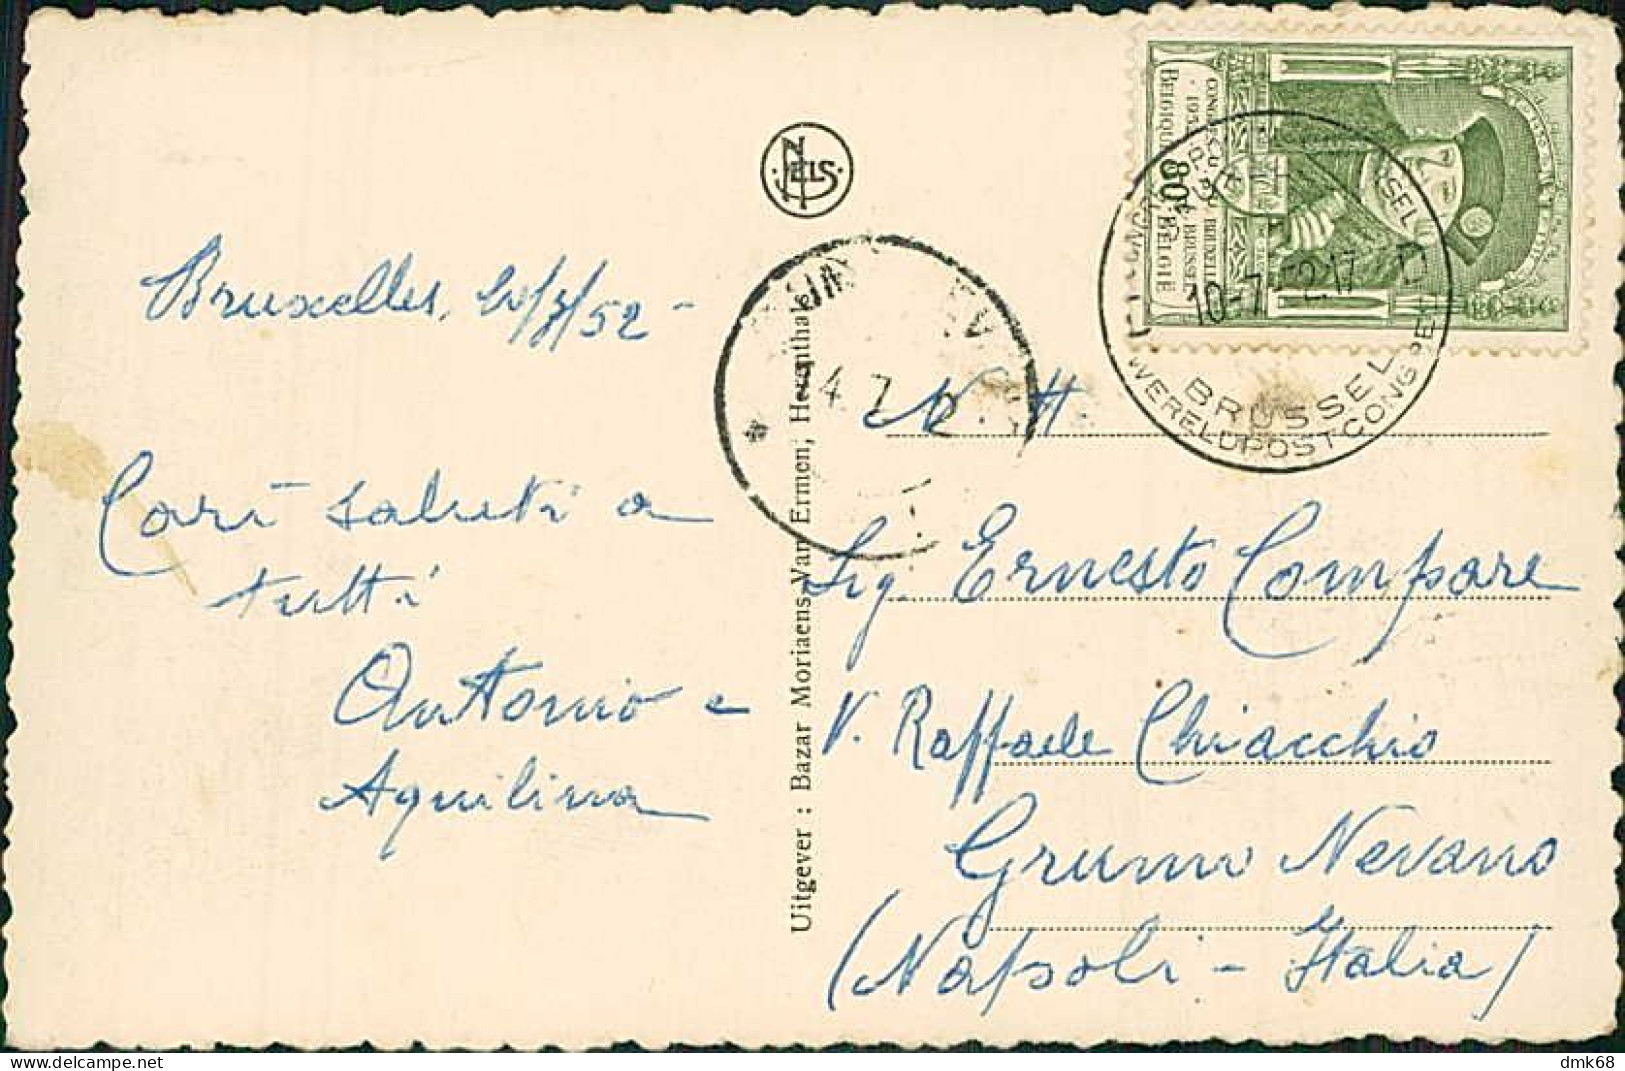 NELS
CONGRÈS
BELGIQUE 80c BELGIË
10-7-52.17
BRUSSEL
WERELDPOSTCONGRES
4 7
Bruxelles, 10/7/52 -
Cari saluti a
tutti
Antonio e
Aquilina
Uitgever : Bazar Moriaens-Van Ermen, Hempthale
N. H.
Sig. Ernesto Compare
V. Raffaele Chiacchio
Grumo Nevano
(Napoli - Italia)
dmk68